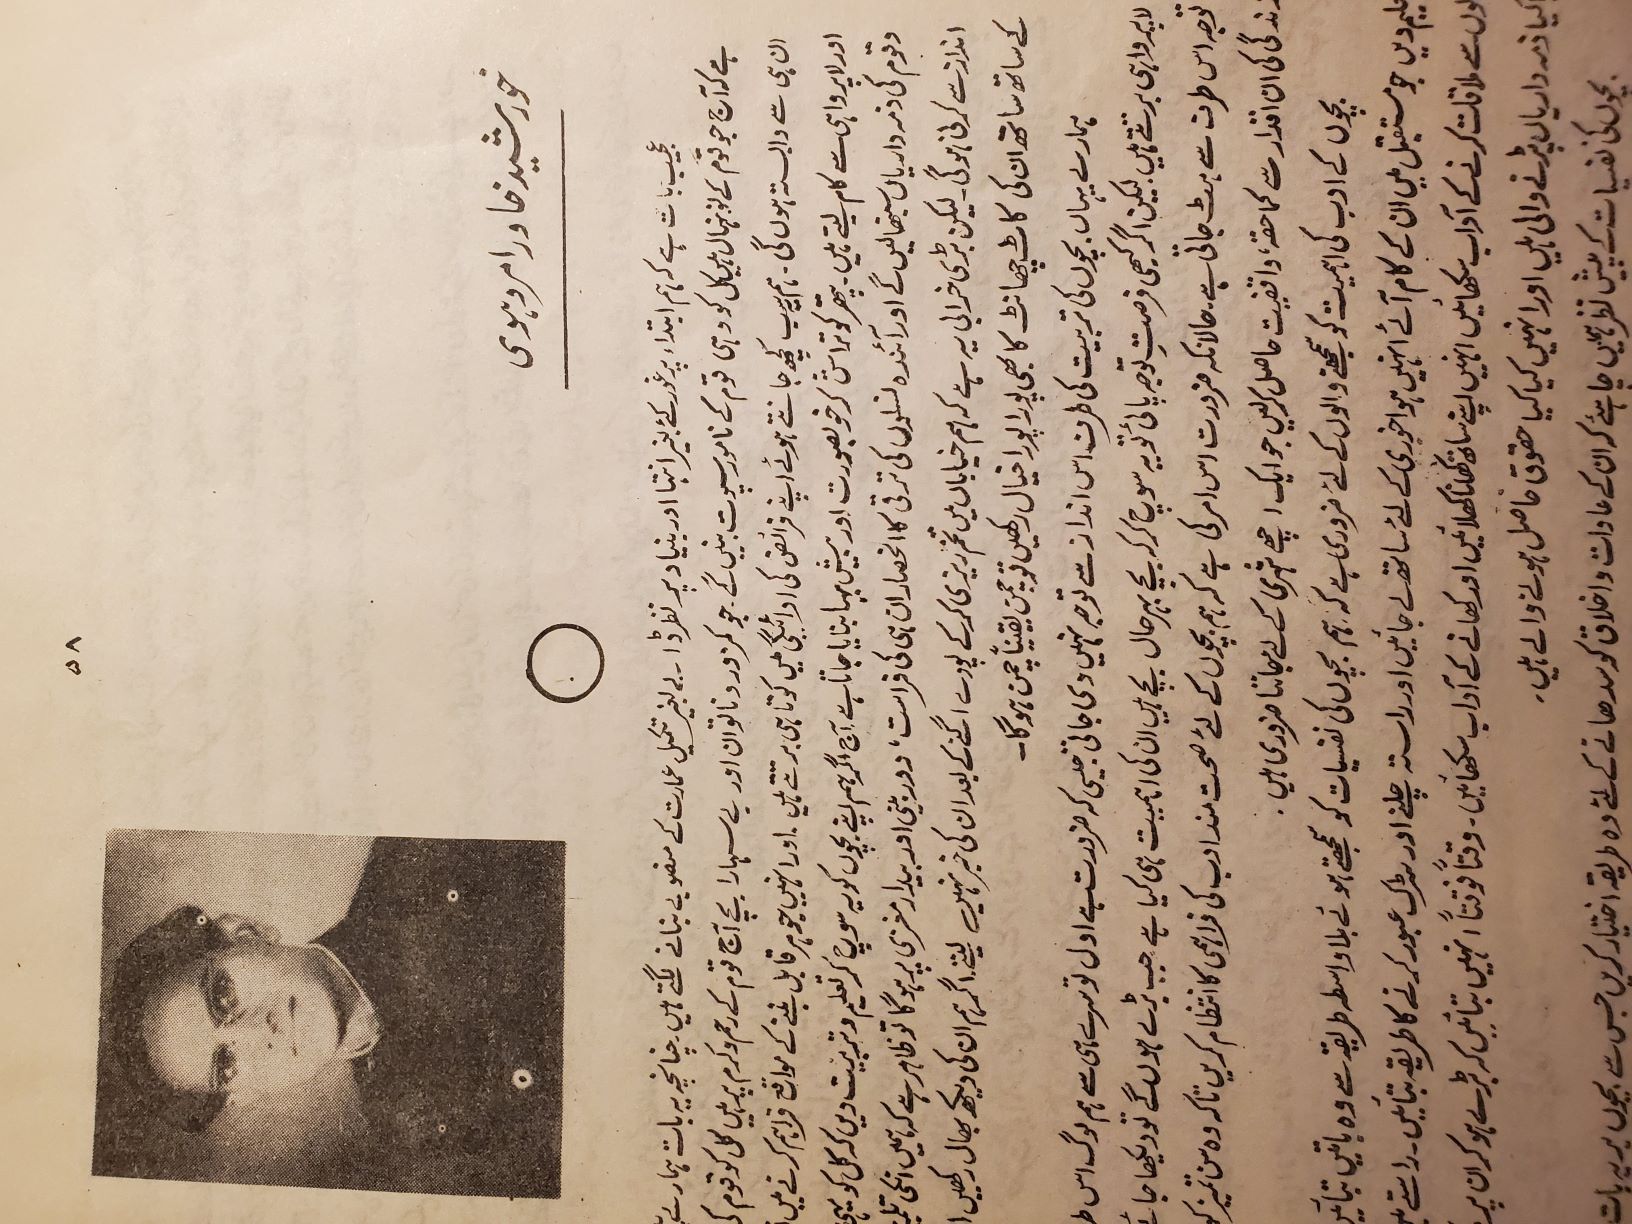 ۵۸
خورشید خاور امروہوی
عجیب بات ہے کہ ہم ابتداء پر غور کئے بغیر انتہا اور بنیاد پر نظر ڈالے بغیر تکمیل عمارت کے منصوبے بنانے لگتے ہیں۔ چنانچہ یہ بات ہمارے
ہے کہ آج جو قوم کے نونہال ہیں کل کو وہی قوم کے نامور سپوت بنیں گے۔ جو کمزور و ناتواں اور بے سہارا بچے آج قوم کے رحم و کرم پر ہیں کل کو قوم کی
ان ہی سے وابستہ ہوں گی۔ ہم سب کچھ جانتے ہوئے اپنے فرائض کی ادائیگی میں کوتاہی برتتے ہیں۔ اور انہیں جوہر قابل بننے کے مواقع فراہم کرنے میں
اور لاپرواہی سے کام لیتے ہیں۔ پتھر کو تراش کر خوبصورت اور بیش بہا بنایا جاتا ہے۔ آج اگر ہم اپنے بچوں کو یہ سوچ کر تعلیم و تربیت دیں کہ کل کو یہی
و قوم کی ذمہ داریاں سنبھالیں گے اور آئندہ نسلوں کی ترقی کا انحصار ان ہی کی فراست، دور بینی اور بیدار مغزی پر ہوگا تو ظاہر ہے کہ ہمیں انکی
انداز سے کرنی ہوگی۔ لیکن بڑی خرابی یہ ہے کہ ہم خیاباں میں تخم ریزی کر کے پودے اگنے کے بعد ان کی خبر نہیں لیتے۔ اگر ہم ان کی دیکھ بھال رکھیں
کے ساتھ ساتھ ان کی کاٹ چھانٹ کا بھی پورا پورا خیال رکھیں تو چمن یقیناً چمن ہوگا۔
ہمارے یہاں بچوں کی تربیت کی طرف اس انداز سے توجہ نہیں دی جاتی جیسی کہ ضرورت ہے اول تو سرے ہی سے ہم لوگ اس
لاپرواہی برتتے ہیں۔ لیکن اگر کبھی فرصت توجہ پائی تو یہ سوچ کر کہ بچے بہرحال بچے ہیں ان کی اہمیت ہی کیا ہے جب بڑے ہوں گے تو دیکھا
توجہ اس طرف سے ہٹ جاتی ہے۔ حالانکہ ضرورت اس امر کی ہے کہ ہم بچوں کے لئے صحت مند ادب کی فراہمی کا انتظام کریں تاکہ وہ سن تمیز
زندگی کی ان اقدار سے کماحقہ، واقفیت حاصل کر لیں جو ایک اچھے شہری کے لئے جاننا ضروری ہیں۔
بچوں کے ادب کی اہمیت کو سمجھنے والوں کے لئے ضروری ہے کہ ہم بچوں کی نفسیات کو سمجھتے ہوئے بلا واسطہ طریقہ سے وہ باتیں بتائیں
جو مستقبل میں ان کے کام آئے انہیں ہواخوری کے لئے ساتھ لے جائیں اور راستہ چلنے اور سڑک عبور کرنے کا طریقہ بتائیں۔ راستے
سے ملاقات کرنے کے آداب سکھائیں انہیں اپنے ساتھ کھانا کھلائیں اور کھانے کے آداب سکھائیں۔ وقتاً فوقتاً انہیں بتائیں کہ بڑے ہو کر ان پر
کیا ذمہ داریاں پڑنے والی ہیں اور انہیں کیا کیا حقوق حاصل ہونے والے ہیں۔
بچوں کی نفسیات کے پیش نظر ہمیں چاہئے کہ ان کے عادات و اخلاق کو سدھانے کے لئے وہ طریقہ اختیار کریں جس سے بچوں پر یہ بات